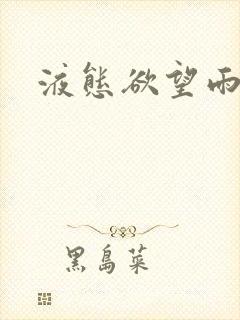 液態欲望雨
黑島菜